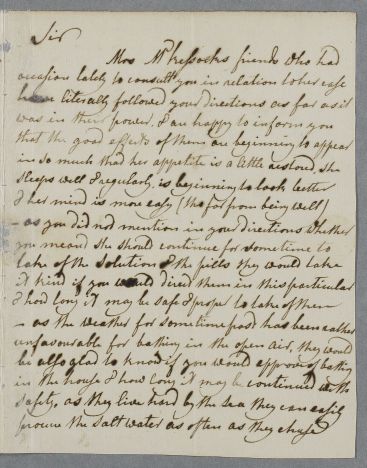 Sir
Mrs McKessocks friends who had
occasion lately to consult you in relation to her case
have literally followed your directions as far as it
was in their power. I am happy to inform you
that the good effects of them are beginning to appear
in so much that her appetite is a little restored, she
sleeps well & regularly, is beginning to look better
& her mind is more easy (tho far from being well)
– as you did not mention in your directions whether
you meant she should continue for some time to
take of the solution & the pills they would take
it kind if you would direct them in this particular
& how long it may be safe & proper to take of them
– as the weather for some time past has been rather
unfavourable for bathing in the open Air, they would
be also glad to know if you would approve of bathing
in the house & how long it may be continued with
safety, as they live hard by the sea they can easily
procure the salt water as often as they chuse